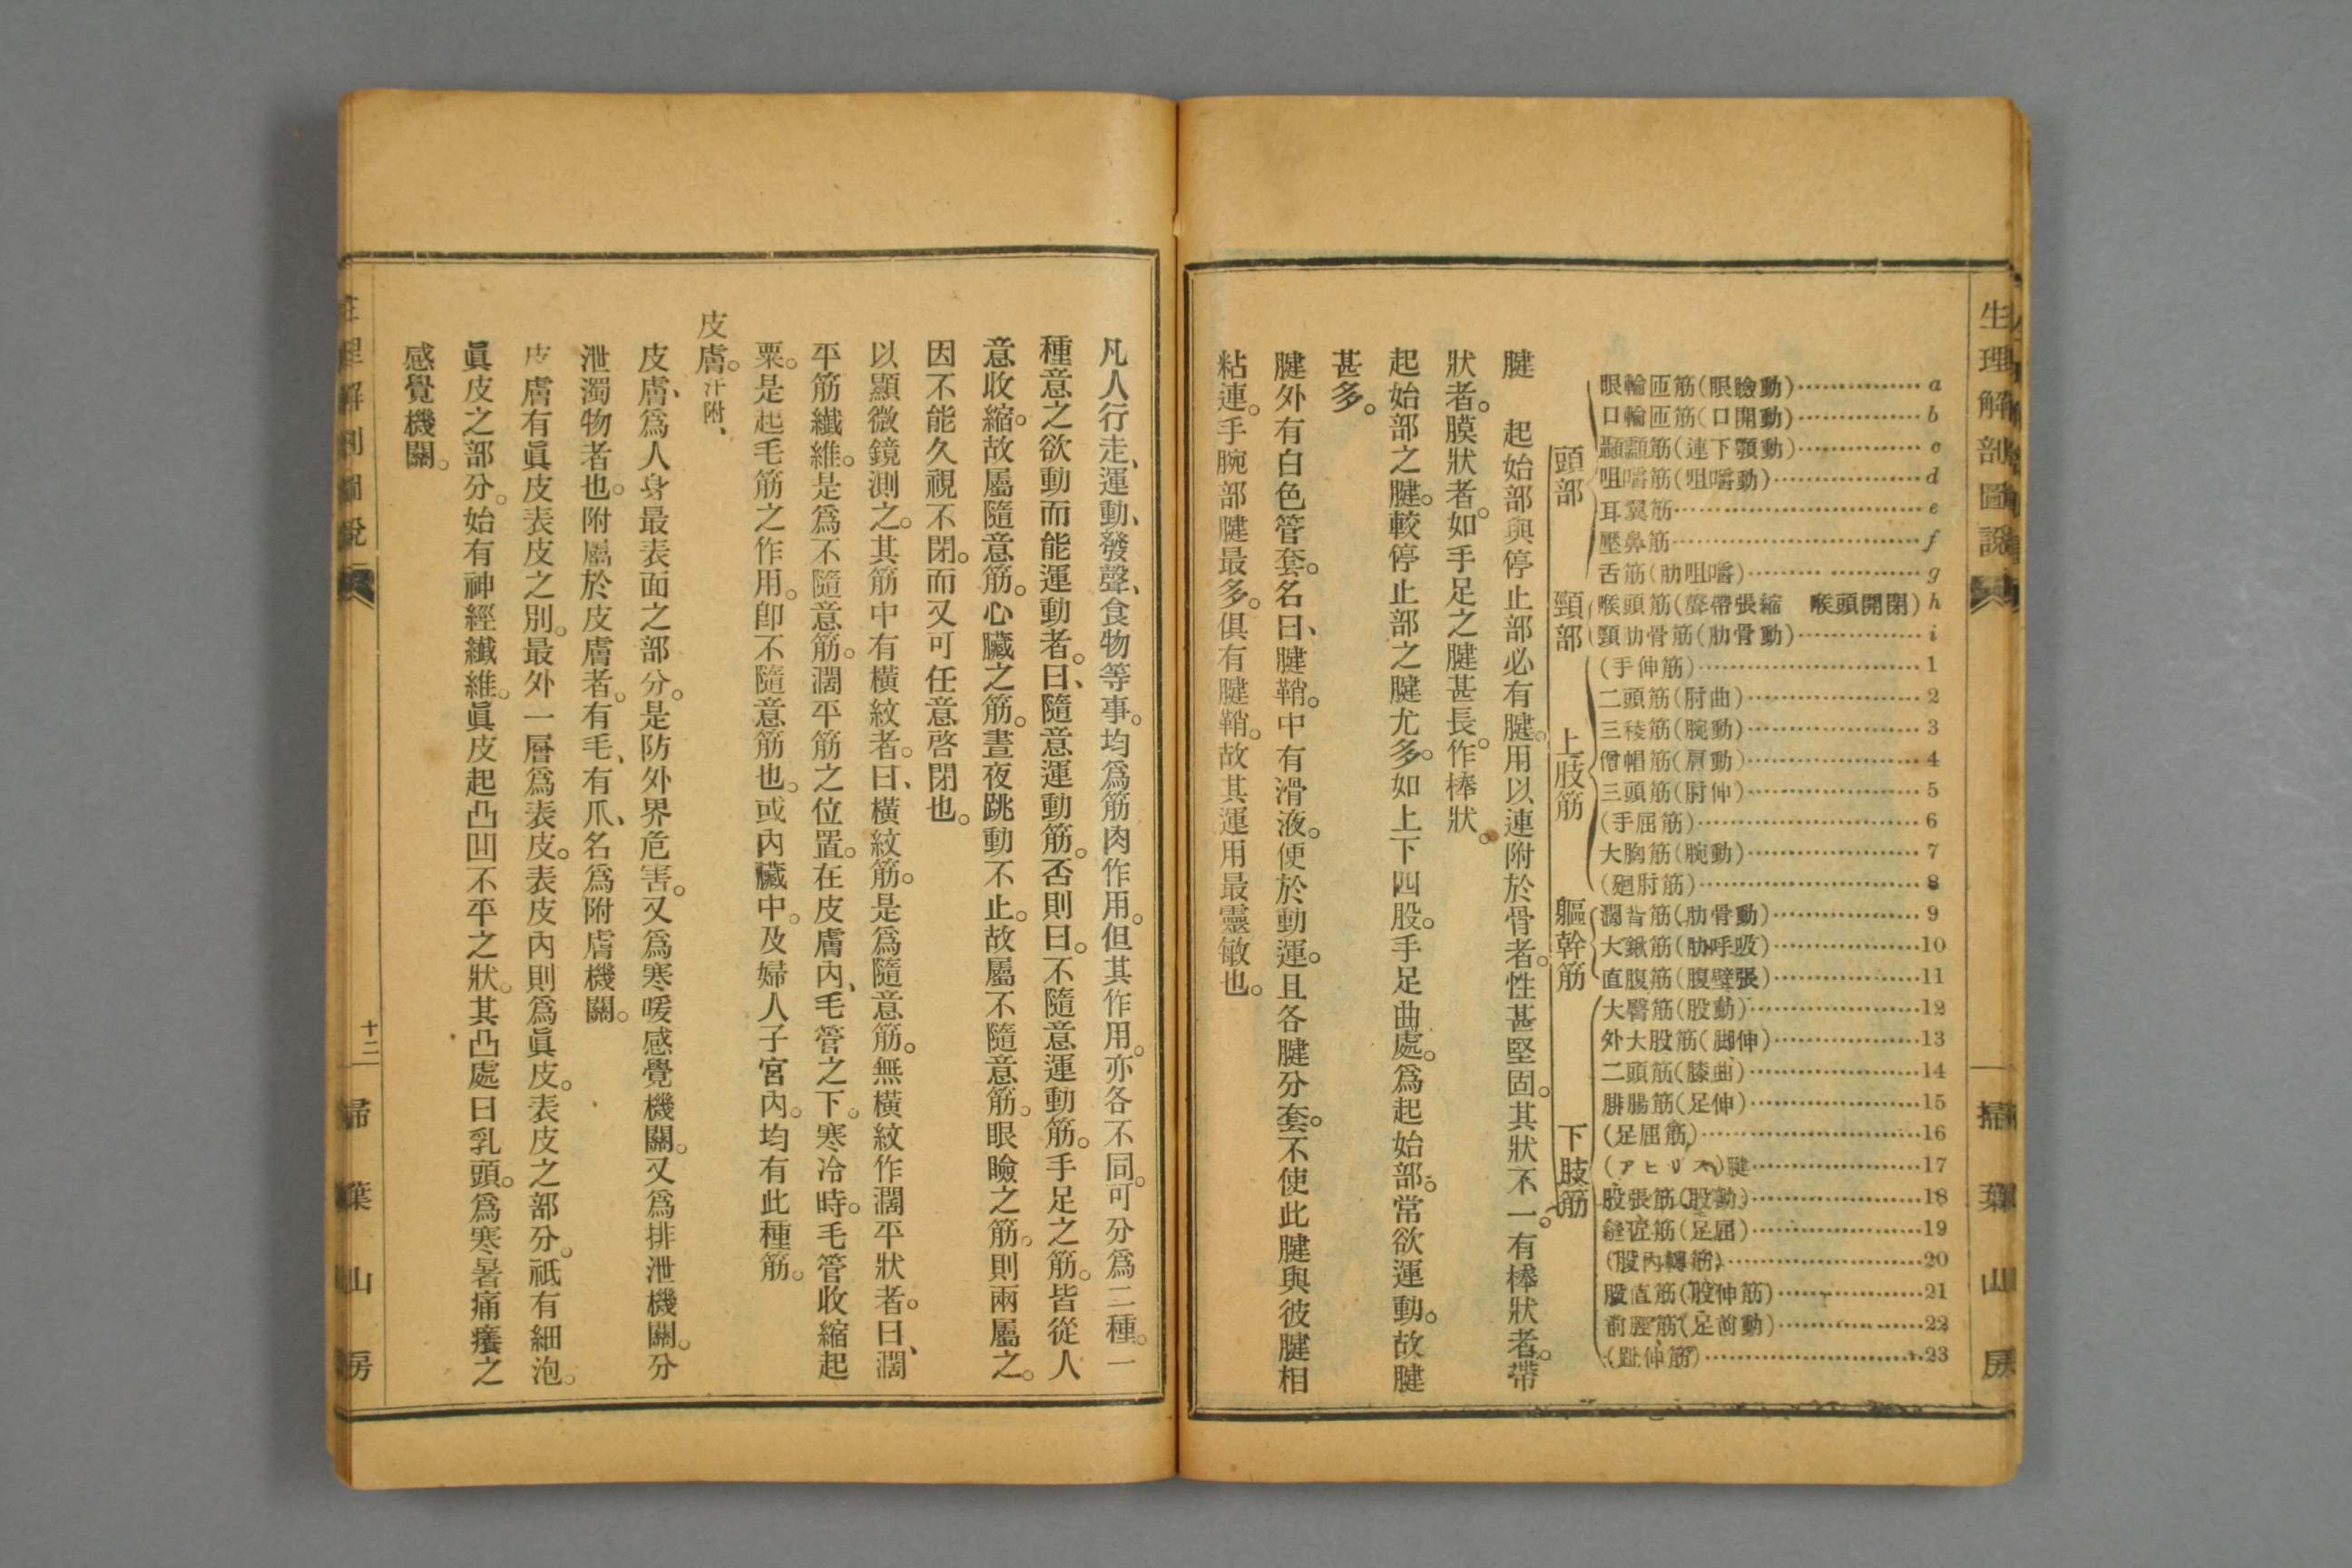 生理解剖圖說
掃葉山房
頭部
眼輪匝筋(眼瞼動)……a
口輪匝筋(口開動)……b
顳顬筋(連下顎動)……c
咀嚼筋(咀嚼動)……d
耳翼筋……e
壓鼻筋……f
舌筋(肋咀嚼)……g
頸部
喉頭筋(聲帶張縮　喉頭開閉)h
頸肋骨筋(肋骨動)……i
上肢筋
(手伸筋)……1
二頭筋(肘曲)……2
三稜筋(腕動)……3
僧帽筋(肩動)……4
三頭筋(肘伸)……5
(手屈筋)……6
大胸筋(腕動)……7
(廻肘筋)……8
軀幹筋
濶背筋(肋骨動)……9
大鍬筋(肋呼吸)……10
直腹筋(腹壁張)……11
下肢筋
大臀筋(股動)……12
外大股筋(脚伸)……13
二頭筋(膝曲)……14
腓腸筋(足伸)……15
(足屈筋)……16
(アヒリス)腱……17
股張筋(股動)……18
縫匠筋(足屈)……19
(股內轉筋)……20
股直筋(股伸筋)……21
前脛筋(足前動)……22
(趾伸筋)……23
腱　起始部與停止部必有腱。用以連附於骨者。性甚堅固。其狀不一。有棒狀者。帶
狀者。膜狀者。如手足之腱甚長。作棒狀。
起始部之腱。較停止部之腱尤多。如上下四股。手足曲處。爲起始部。常欲運動。故腱
甚多。
腱外有白色管套。名曰、腱鞘。中有滑液。便於動運。且各腱分套。不使此腱與彼腱相
粘連。手腕部腱最多。俱有腱鞘。故其運用最靈敏也。
凡人行走、運動、發聲、食物等事。均爲筋肉作用。但其作用。亦各不同。可分爲二種。一
種意之欲動而能運動者。曰、隨意運動筋。否則曰。不隨意運動筋。手足之筋。皆從人
意收縮。故屬隨意筋。心臟之筋。晝夜跳動不止。故屬不隨意筋。眼瞼之筋。則兩屬之。
因不能久視不閉。而又可任意啓閉也。
以顯微鏡測之。其筋中有橫紋者。曰、橫紋筋。是爲隨意筋。無橫紋作濶平狀者。曰、濶
平筋纖維。是爲不隨意筋。濶平筋之位置。在皮膚內、毛管之下。寒冷時。毛管收縮起
粟。是起毛筋之作用。卽不隨意筋也。或內臟中。及婦人子宮內。均有此種筋。
皮膚。汗附、
皮膚、爲人身最表面之部分。是防外界危害。又爲寒暖感覺機關。又爲排泄機關。分
泄濁物者也。附屬於皮膚者。有毛、有爪、名爲附膚機關。
皮膚有眞皮表皮之別。最外一層爲表皮。表皮內則爲眞皮。表皮之部分。祗有細泡。
眞皮之部分。始有神經纖維。眞皮起凸凹不平之狀。其凸處曰乳頭。爲寒暑痛癢之
感覺機關。
生理解剖圖說
十二
掃葉山房